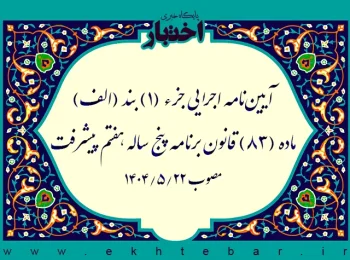 پایگاه خبری
اختبار
آیین‌نامه اجرایی جزء (۱) بند (الف)
ماده (۸۳) قانون برنامه پنج ساله هفتم پیشرفت
مصوب ۱۴۰۴/۵/۲۲
www.ekhtebar.ir